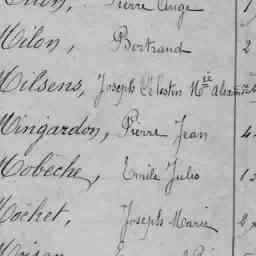 Pierre Ange 1
Milon, Bertrand 2
Milsens, Joseph Célestin Mie
Mingardon, Pierre Jean 4
Mobèche, Emile Jules 1
Mochet, Joseph Marie 2